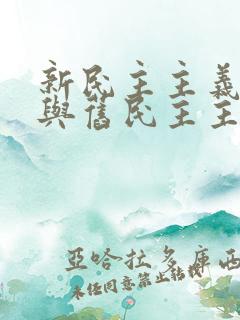 新民主主義
與舊民主主
亞哈拉多庫西
未经同意禁止转载